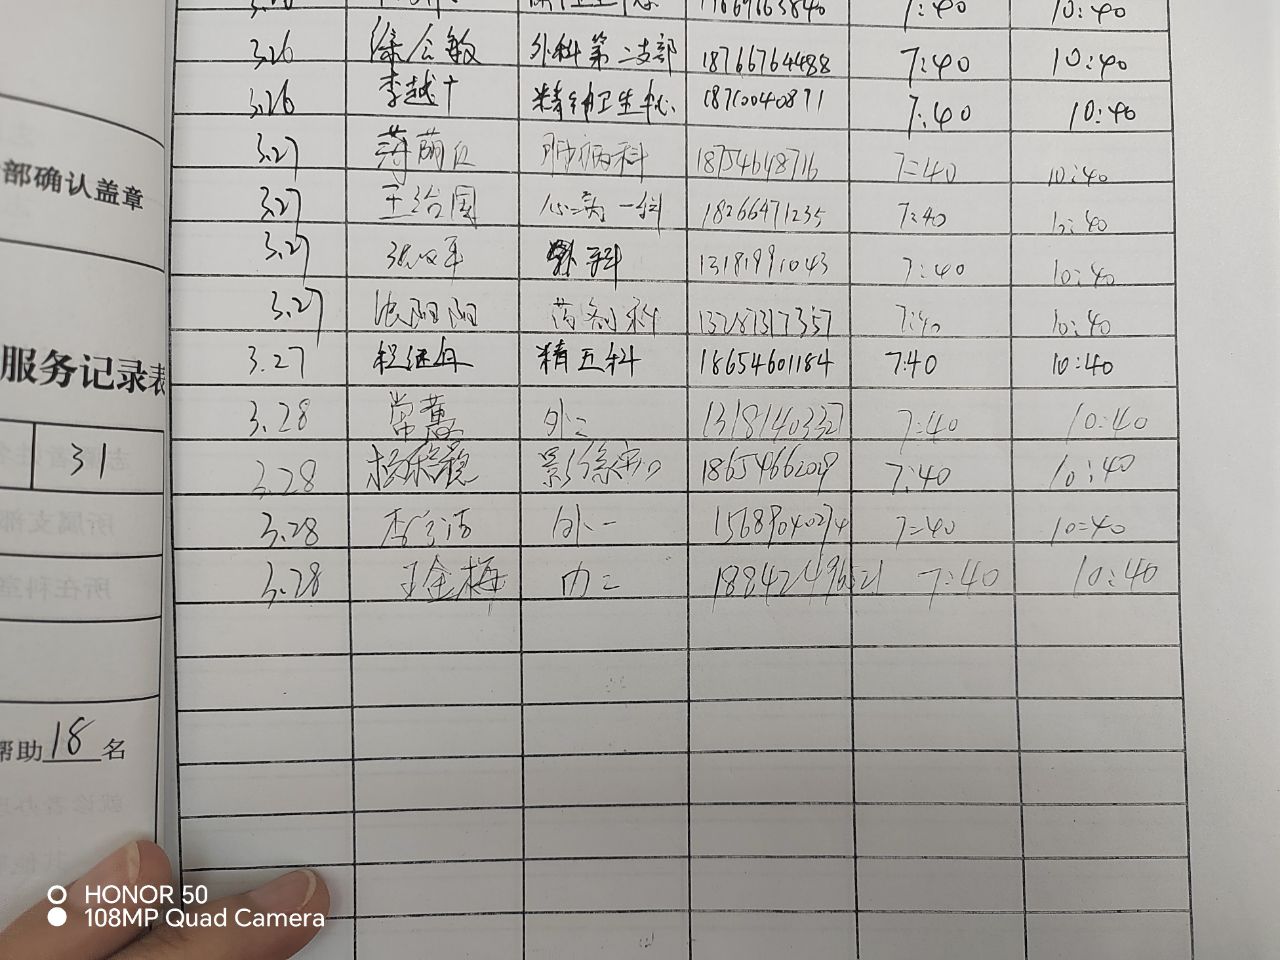 7:40 10:40
3.26 徐会敏 外科第二支部 18766764488 7:40 10:40
3.26 李越 精神卫生中心 18710040871 7:40 10:40
3.27 薄荫 肺病科 18754648716 7:40 10:40
3.27 王治国 一科 18266471235 7:40 10:40
3.27 外科 13181991043 7:40 10:40
3.27 阳阳 药剂科 13287317357 7:40 10:40
3.27 程继舟 精五科 18654601184 7:40 10:40
3.28 常蕙 外二 13181403327 7:40 10:40
3.28 杨 影像 7:40 10:40
3.28 李 外一 7:40 10:40
3.28 王金梅 内二 7:40 10:40
部确认盖章
服务记录表
31
帮助18名
HONOR 50
108MP Quad Camera